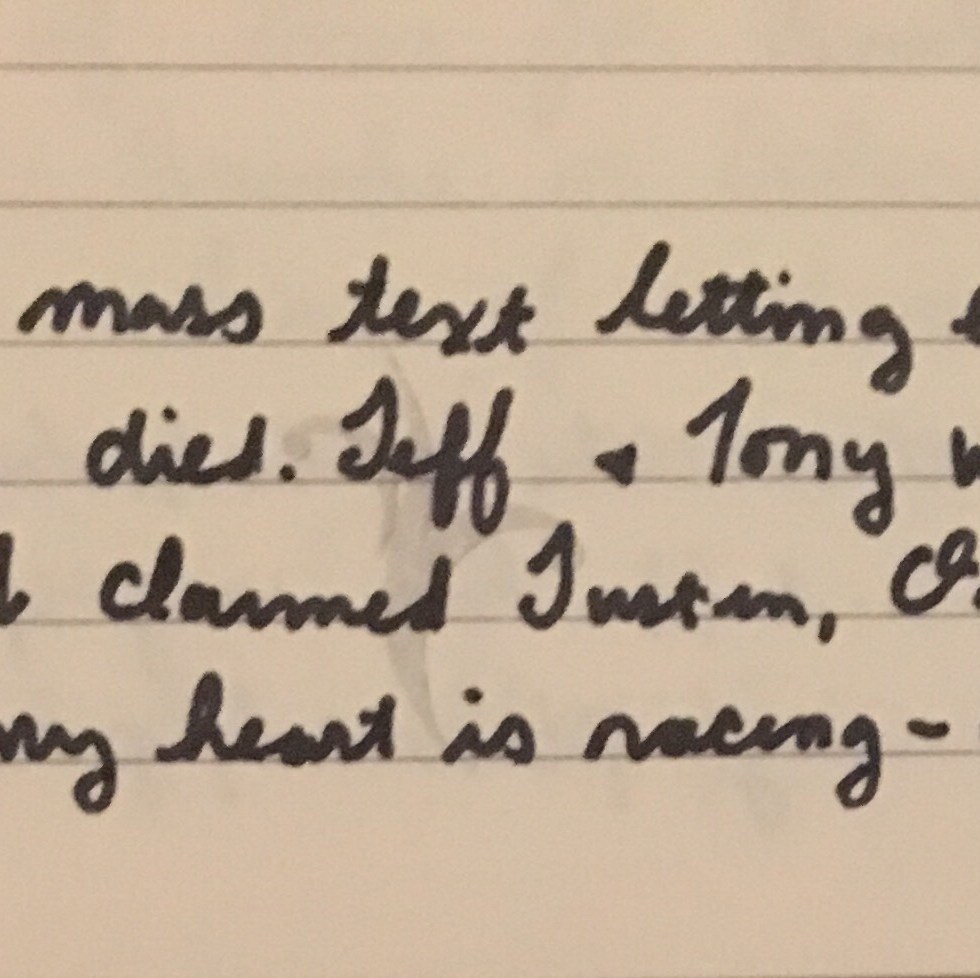 mass text letting
died. Jeff & Tony
claimed Justin,
my heart is racing-